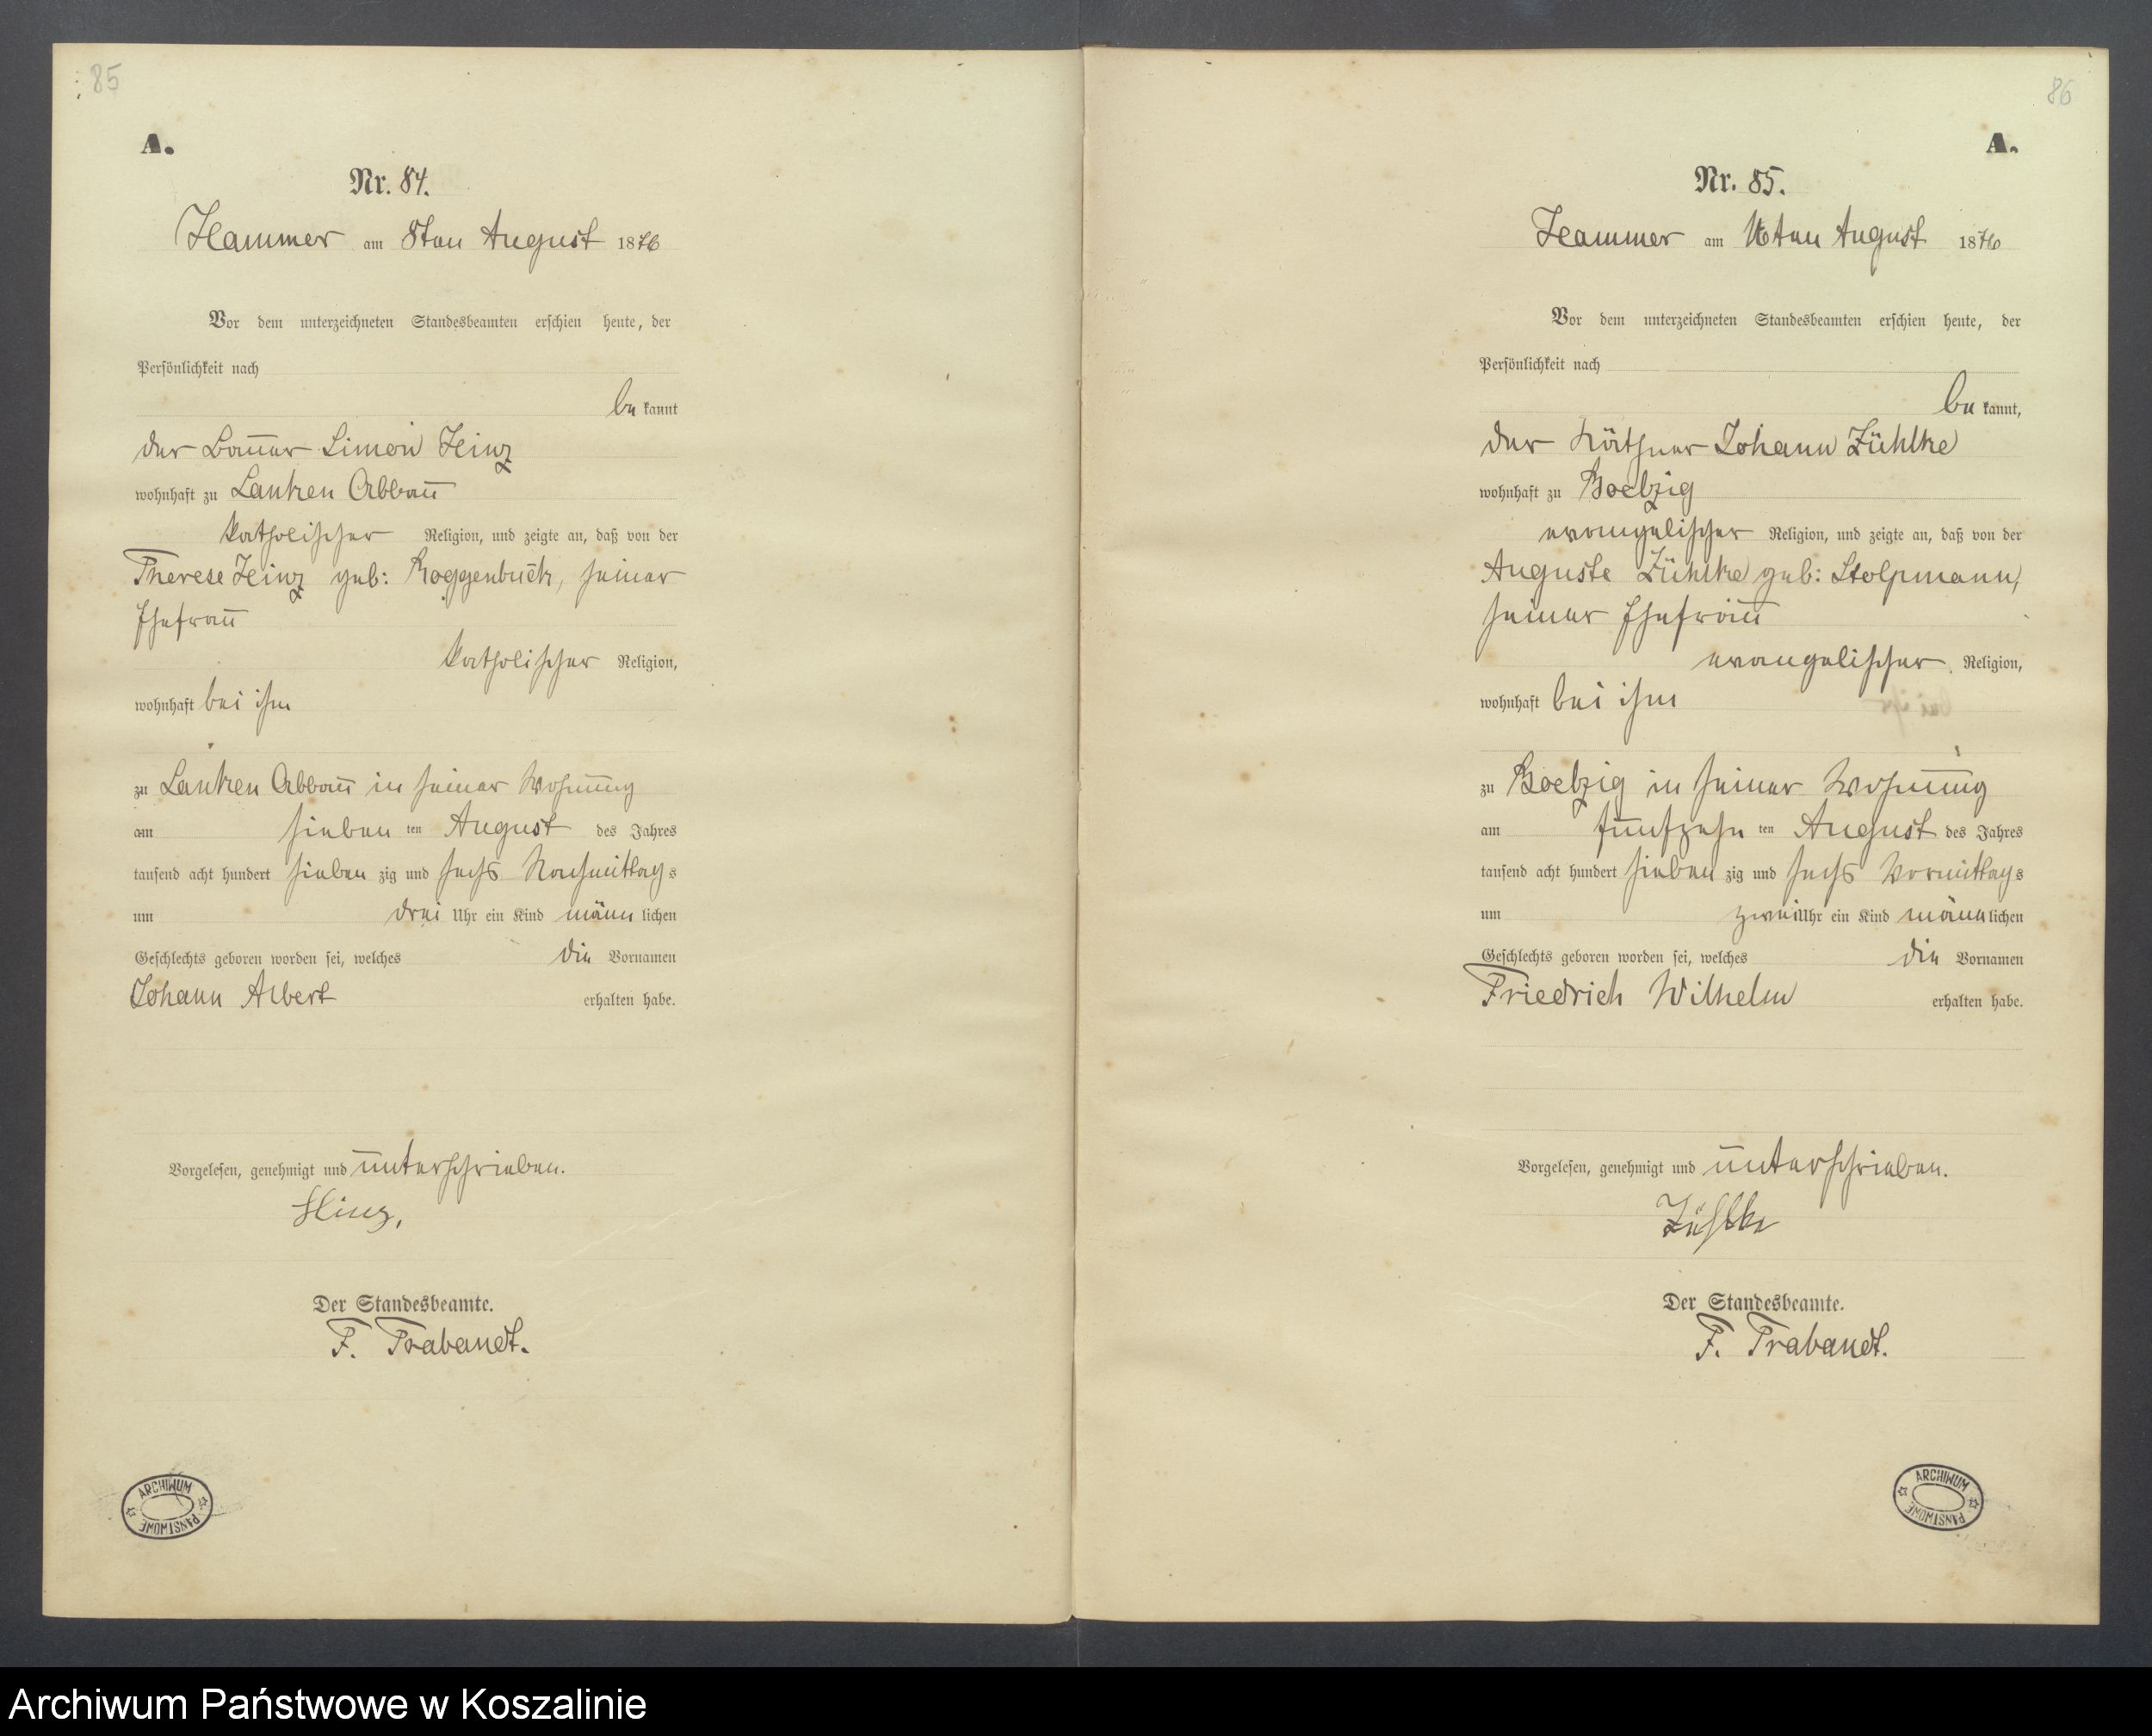 85
A.
Nr. 84.
Hammer am 8ten August 1876
Vor dem unterzeichneten Standesbeamten erschien heute, der
Persönlichkeit nach
be kannt
der Bauer Simon Hinz
wohnhaft zu Lanken Abbau
katholischer Religion, und zeigte an, daß von der
Therese Hinz geb: Roggenbuck, seiner
Ehefrau
katholischer Religion,
wohnhaft bei ihm
zu Lanken Abbau in seiner Wohnung
am sieben ten August des Jahres
tausend acht hundert sieben zig und sechs Nachmittags
um drei Uhr ein Kind männ lichen
Geschlechts geboren worden sei, welches die Vornamen
Johann Albert erhalten habe.
Vorgelesen, genehmigt und unterschrieben.
Hinz,
Der Standesbeamte.
F. Trabandt.
ARCHIWUM PAŃSTWOWE
86
A.
Nr. 85.
Hammer am 16ten August 1876
Vor dem unterzeichneten Standesbeamten erschien heute, der
Persönlichkeit nach
be kannt,
der Käthner Johann Zühlke
wohnhaft zu Boelzig
evangelischer Religion, und zeigte an, daß von der
Auguste Zühlke geb: Stolpmann,
seiner Ehefrau
evangelischer Religion,
wohnhaft bei ihm
zu Boelzig in seiner Wohnung
am fünfzehn ten August des Jahres
tausend acht hundert sieben zig und sechs Vormittags
um zwei Uhr ein Kind männ lichen
Geschlechts geboren worden sei, welches die Vornamen
Friedrich Wilhelm erhalten habe.
Vorgelesen, genehmigt und unterschrieben.
Zühlke
Der Standesbeamte.
F. Trabandt.
ARCHIWUM PAŃSTWOWE
Archiwum Państwowe w Koszalinie